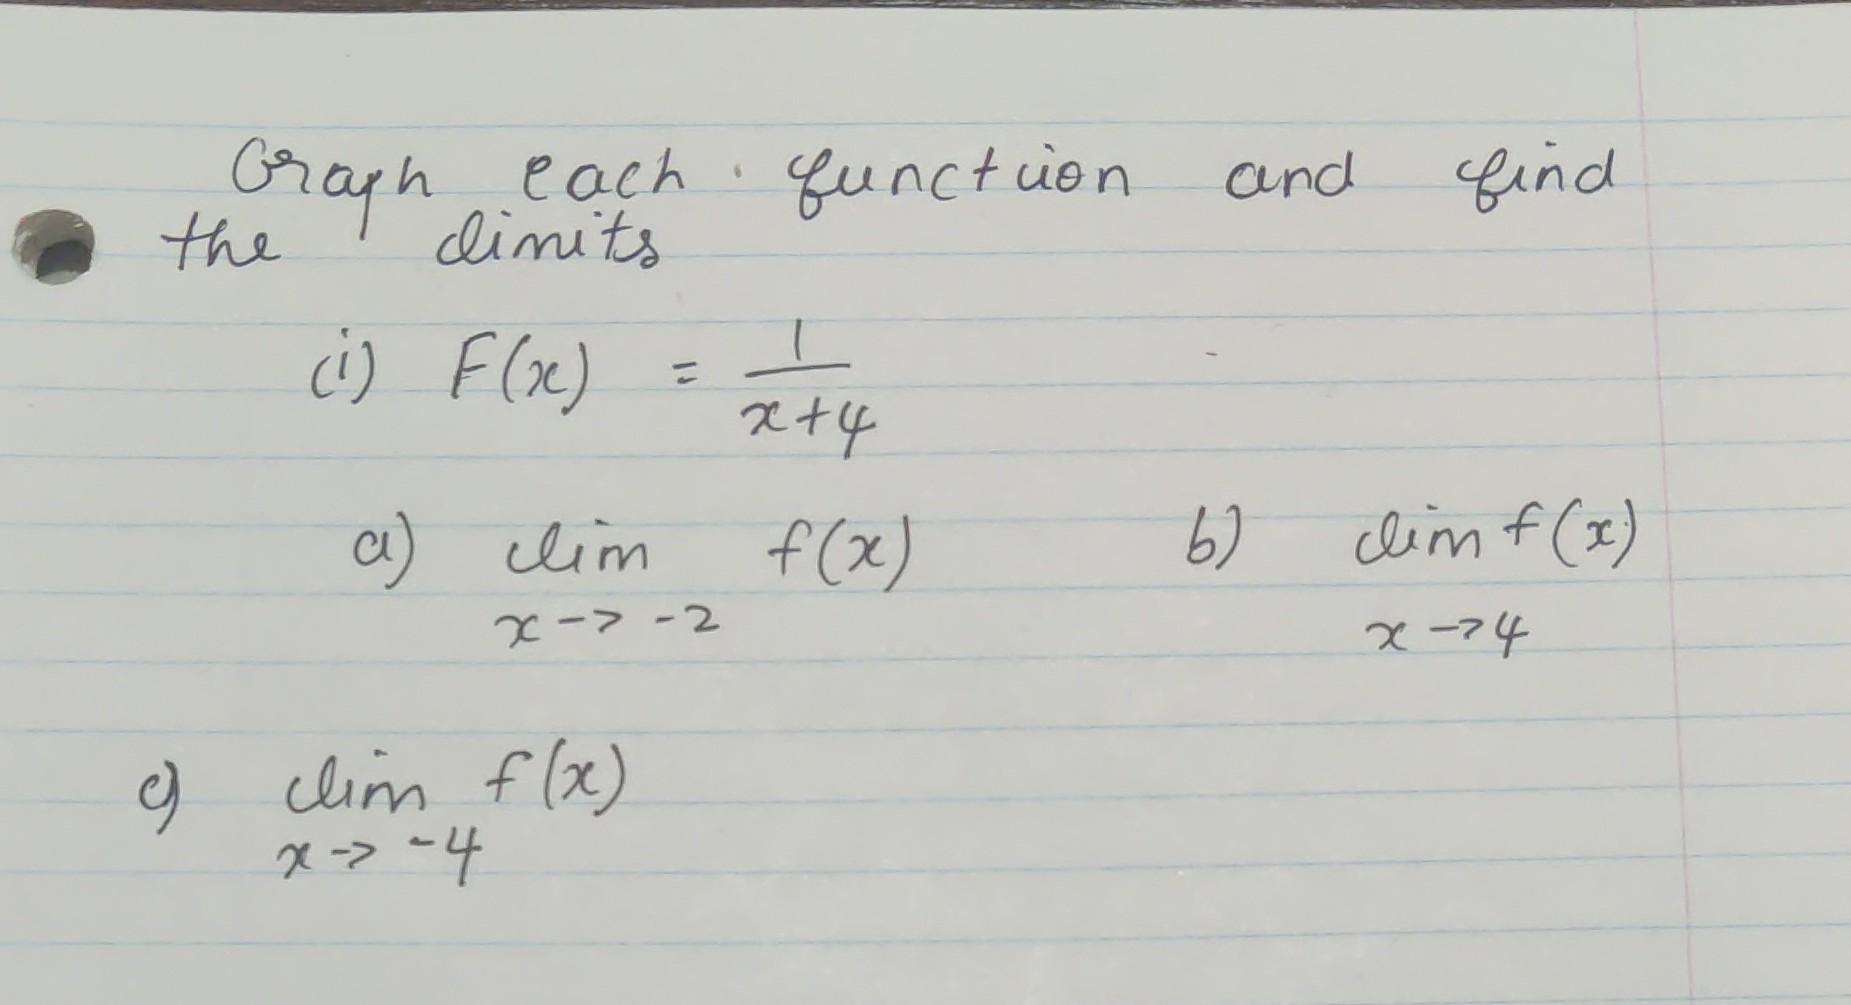 Graph each function and find
the limits
(i) F(x) = 1/(x+4)
a) lim x->-2 f(x) b) lim x->4 f(x)
c) lim x->-4 f(x)